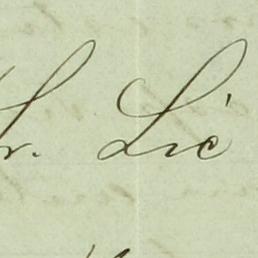 Sr. Lic